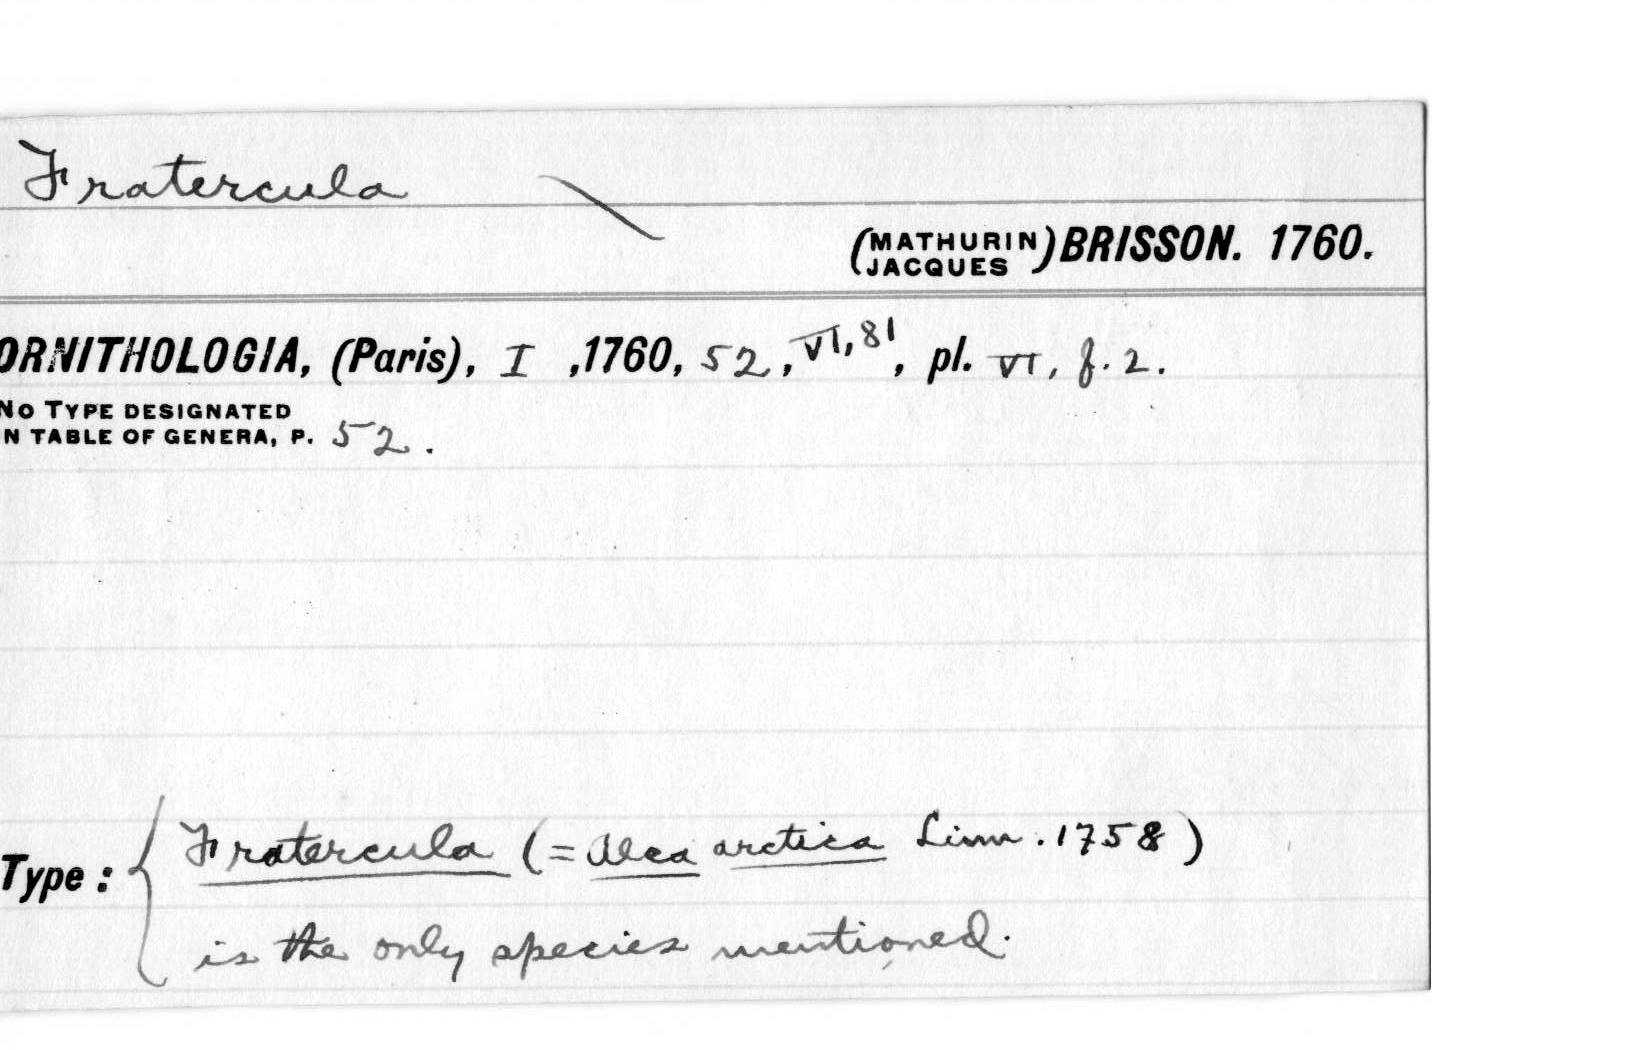 Fratercula
(MATHURIN JACQUES) BRISSON. 1760.
ORNITHOLOGIA, (Paris), I ,1760, 52, VI, 81, pl. VI, f. 2.
NO TYPE DESIGNATED
IN TABLE OF GENERA, P. 52.
Type: { Fratercula (= Alca arctica Linn. 1758)
is the only species mentioned.